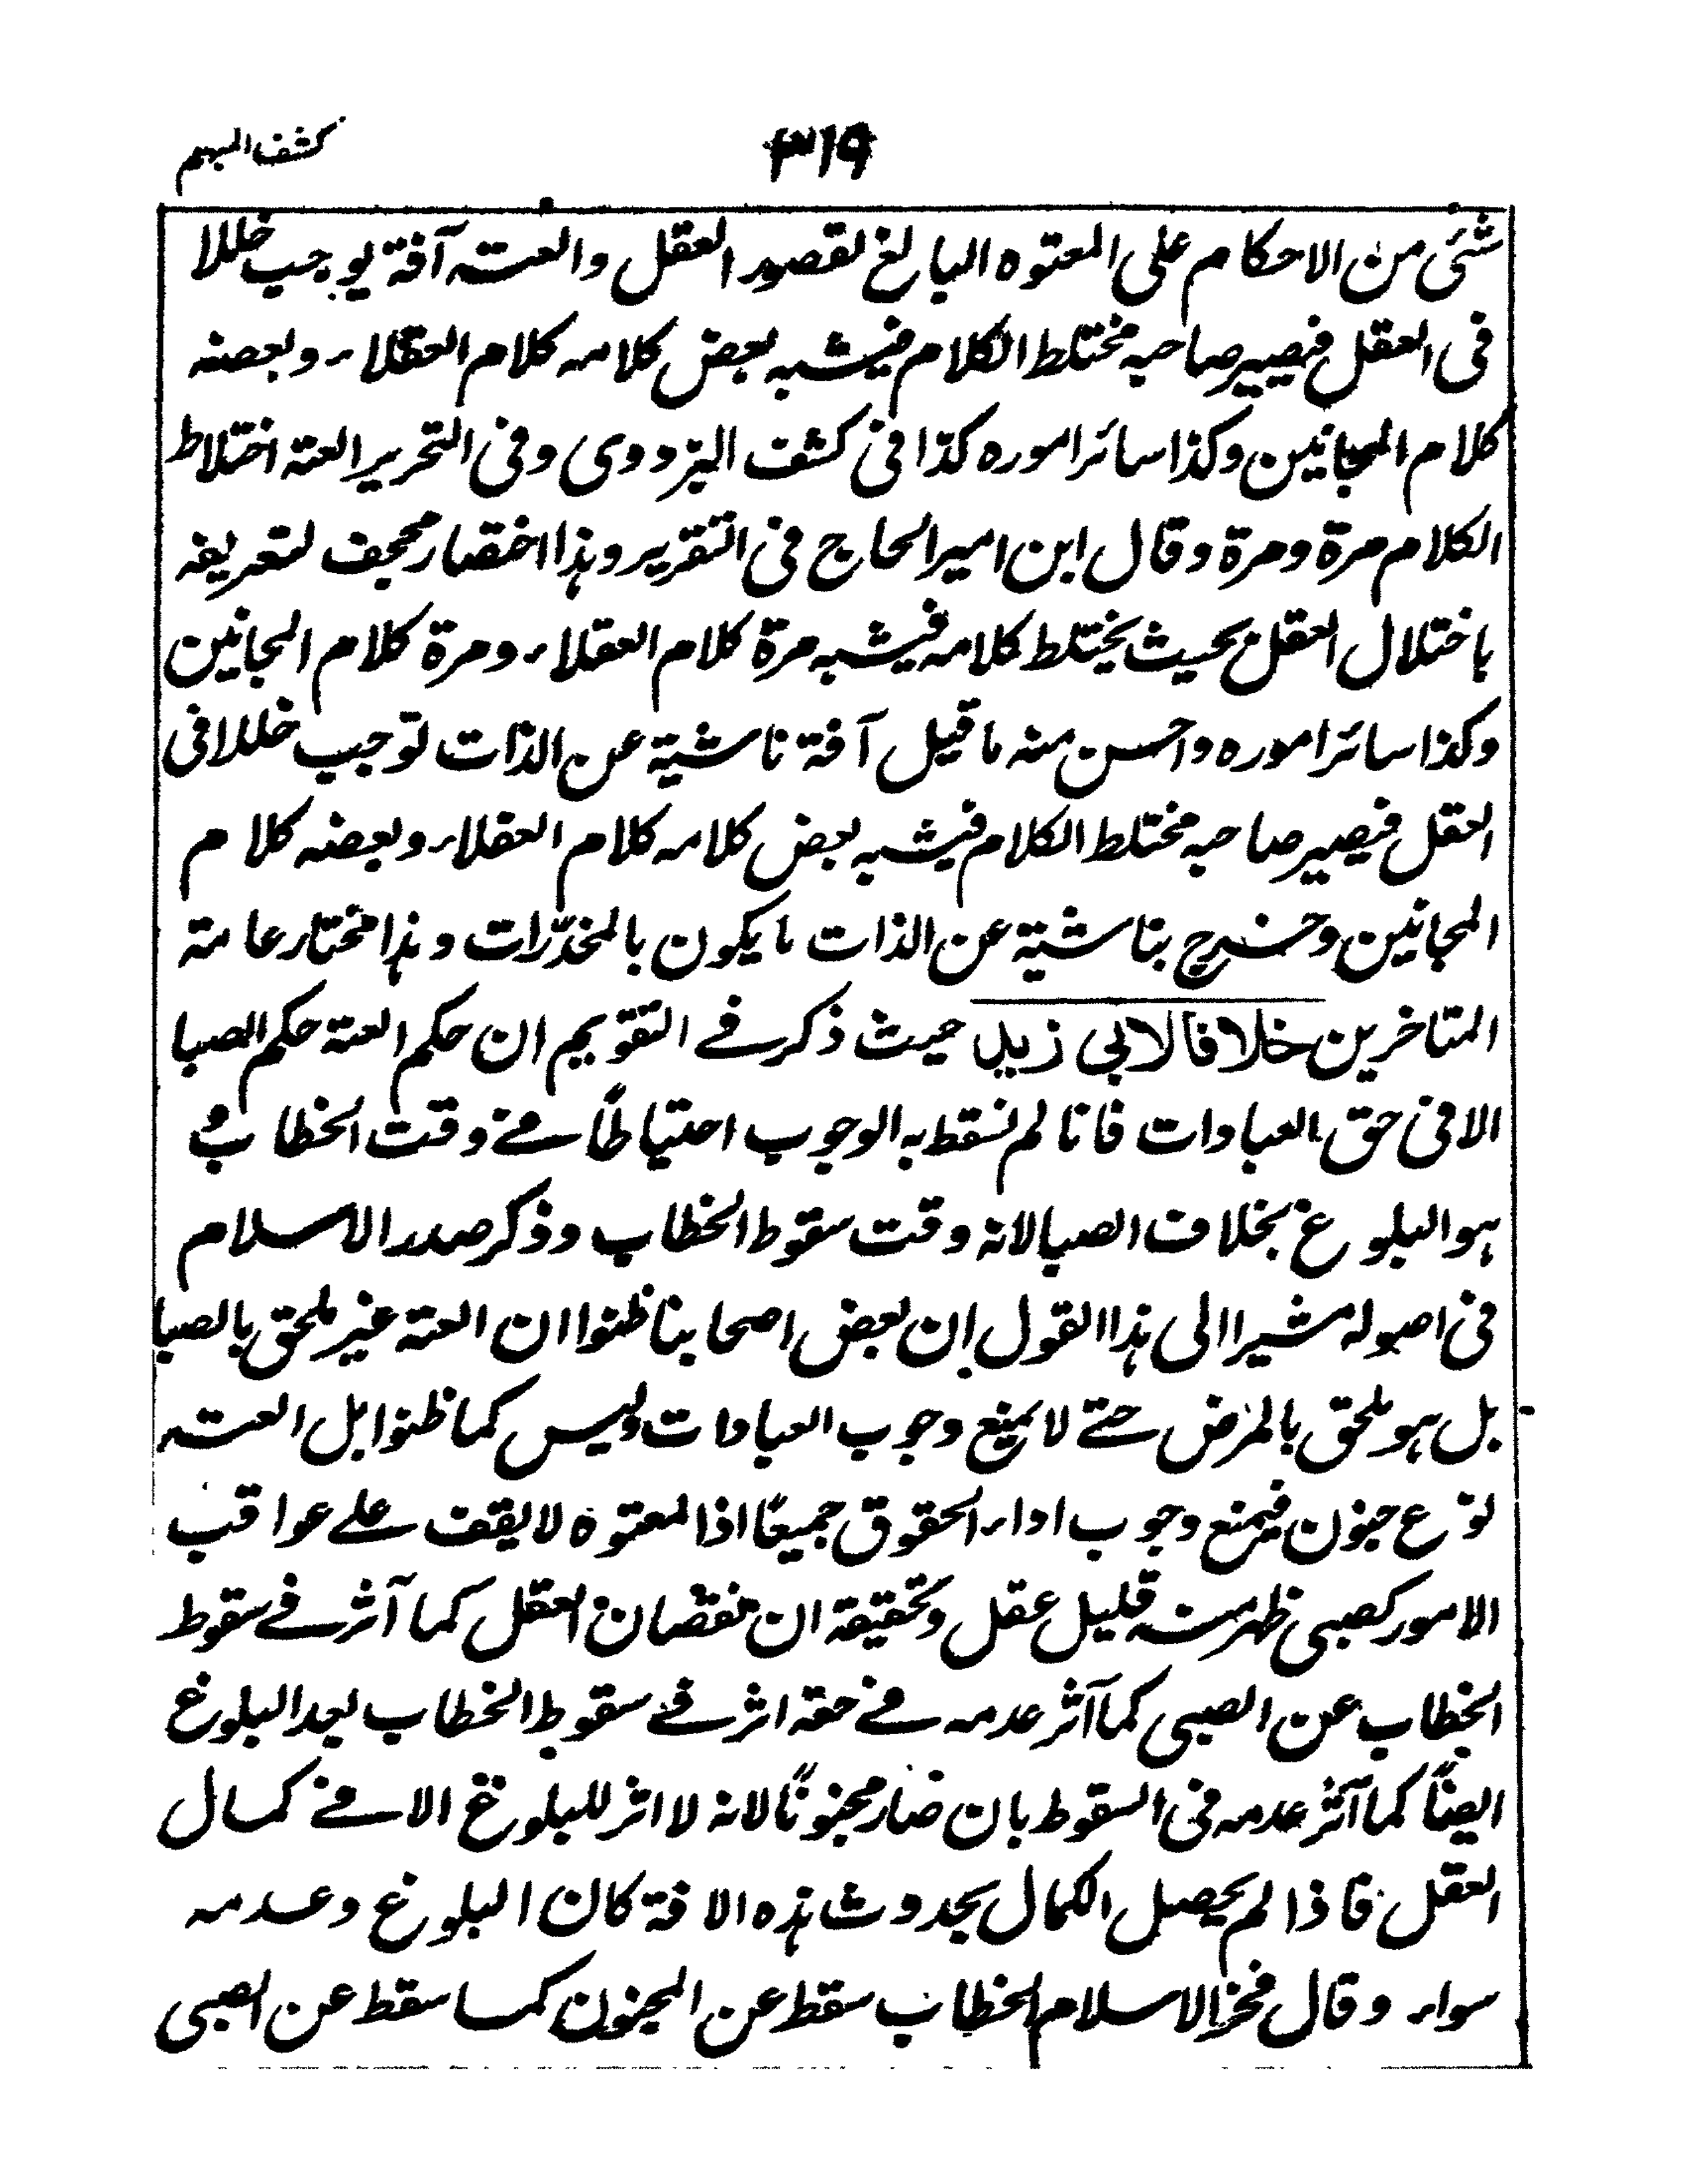 كشف المبهم
٣١٩
شئ من الاحكام على المعتوه البالغ لقصور العقل والعته آفة يوجب خللا
فى العقل فيصير صاحبه مختلط الكلام فيشبه بعض كلامه كلام العقلاء وبعضه
كلام المجانين وكذا سائر اموره كذا فى كشف البزدوى وفى التحرير العته اختلاط
الكلام مرة ومرة وقال ابن امير الحاج فى التقرير وهذا اختصار مجحف لتعريفه
باختلال العقل بحيث يختلط كلامه فيشبه مرة كلام العقلاء ومرة كلام المجانين
وكذا سائر اموره واحسن منه ما قيل آفة ناشية عن الذات توجب خللا فى
العقل فيصير صاحبه مختلط الكلام فيشبه بعض كلامه كلام العقلاء وبعضه كلام
المجانين وخرج بناشية عن الذات ما يكون بالمخدّرات وهذا مختار عامة
المتاخرين خلافا لابي زيد حيث ذكر فے التقويم ان حكم العته حكم الصبا
الا فى حق العبادات فانا لم نسقط به الوجوب احتياطًا فے وقت الخطاب و
هو البلوغ بخلاف الصبا لانه وقت سقوط الخطاب وذكر صدر الاسلام
فى اصوله مشيرا الى هذا القول ان بعض اصحابنا ظنوا ان العته غير ملحق بالصبا
بل هو ملحق بالمرض حتے لا يمنع وجوب العبادات وليس كما ظنوا بل العته
نوع جنون فيمنع وجوب اداء الحقوق جميعًا اذ المعتوه لا يقف علے عواقب
الامور كصبى ظهر منه قليل عقل وتحقيقة ان نقصان العقل كما آثر فے سقوط
الخطاب عن الصبى كما آثر عدمه فے حقه اثر فے سقوط الخطاب بعد البلوغ
ايضًا كما آثر عدمه فى السقوط بان صار مجنونًا لانه لا اثر للبلوغ الا فے كمال
العقل فاذا لم يحصل الكمال بحدوث هذه الافة كان البلوغ وعدمه
سواء وقال فخر الاسلام الخطاب سقط عن المجنون كما سقط عن الصبى